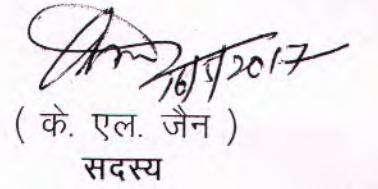 16/5/2017
( के. एल. जैन )
सदस्य